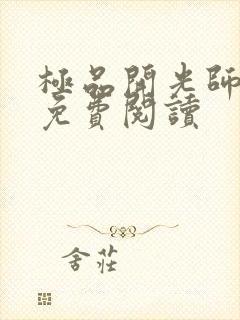 極品開光師
免費閱讀
舍莊